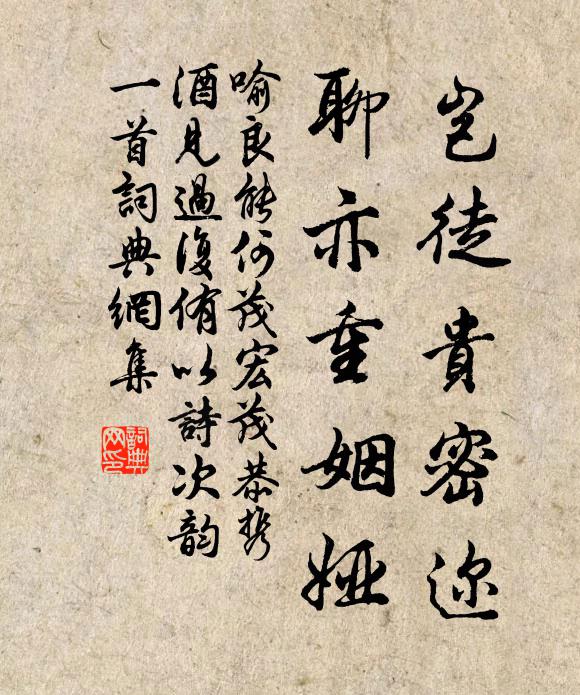 豈徒貴密邇
聊亦重姻婭
喻良能何茂宏茂恭携
酒見過復侑以詩次韵
一首詞典網集
詞典網印